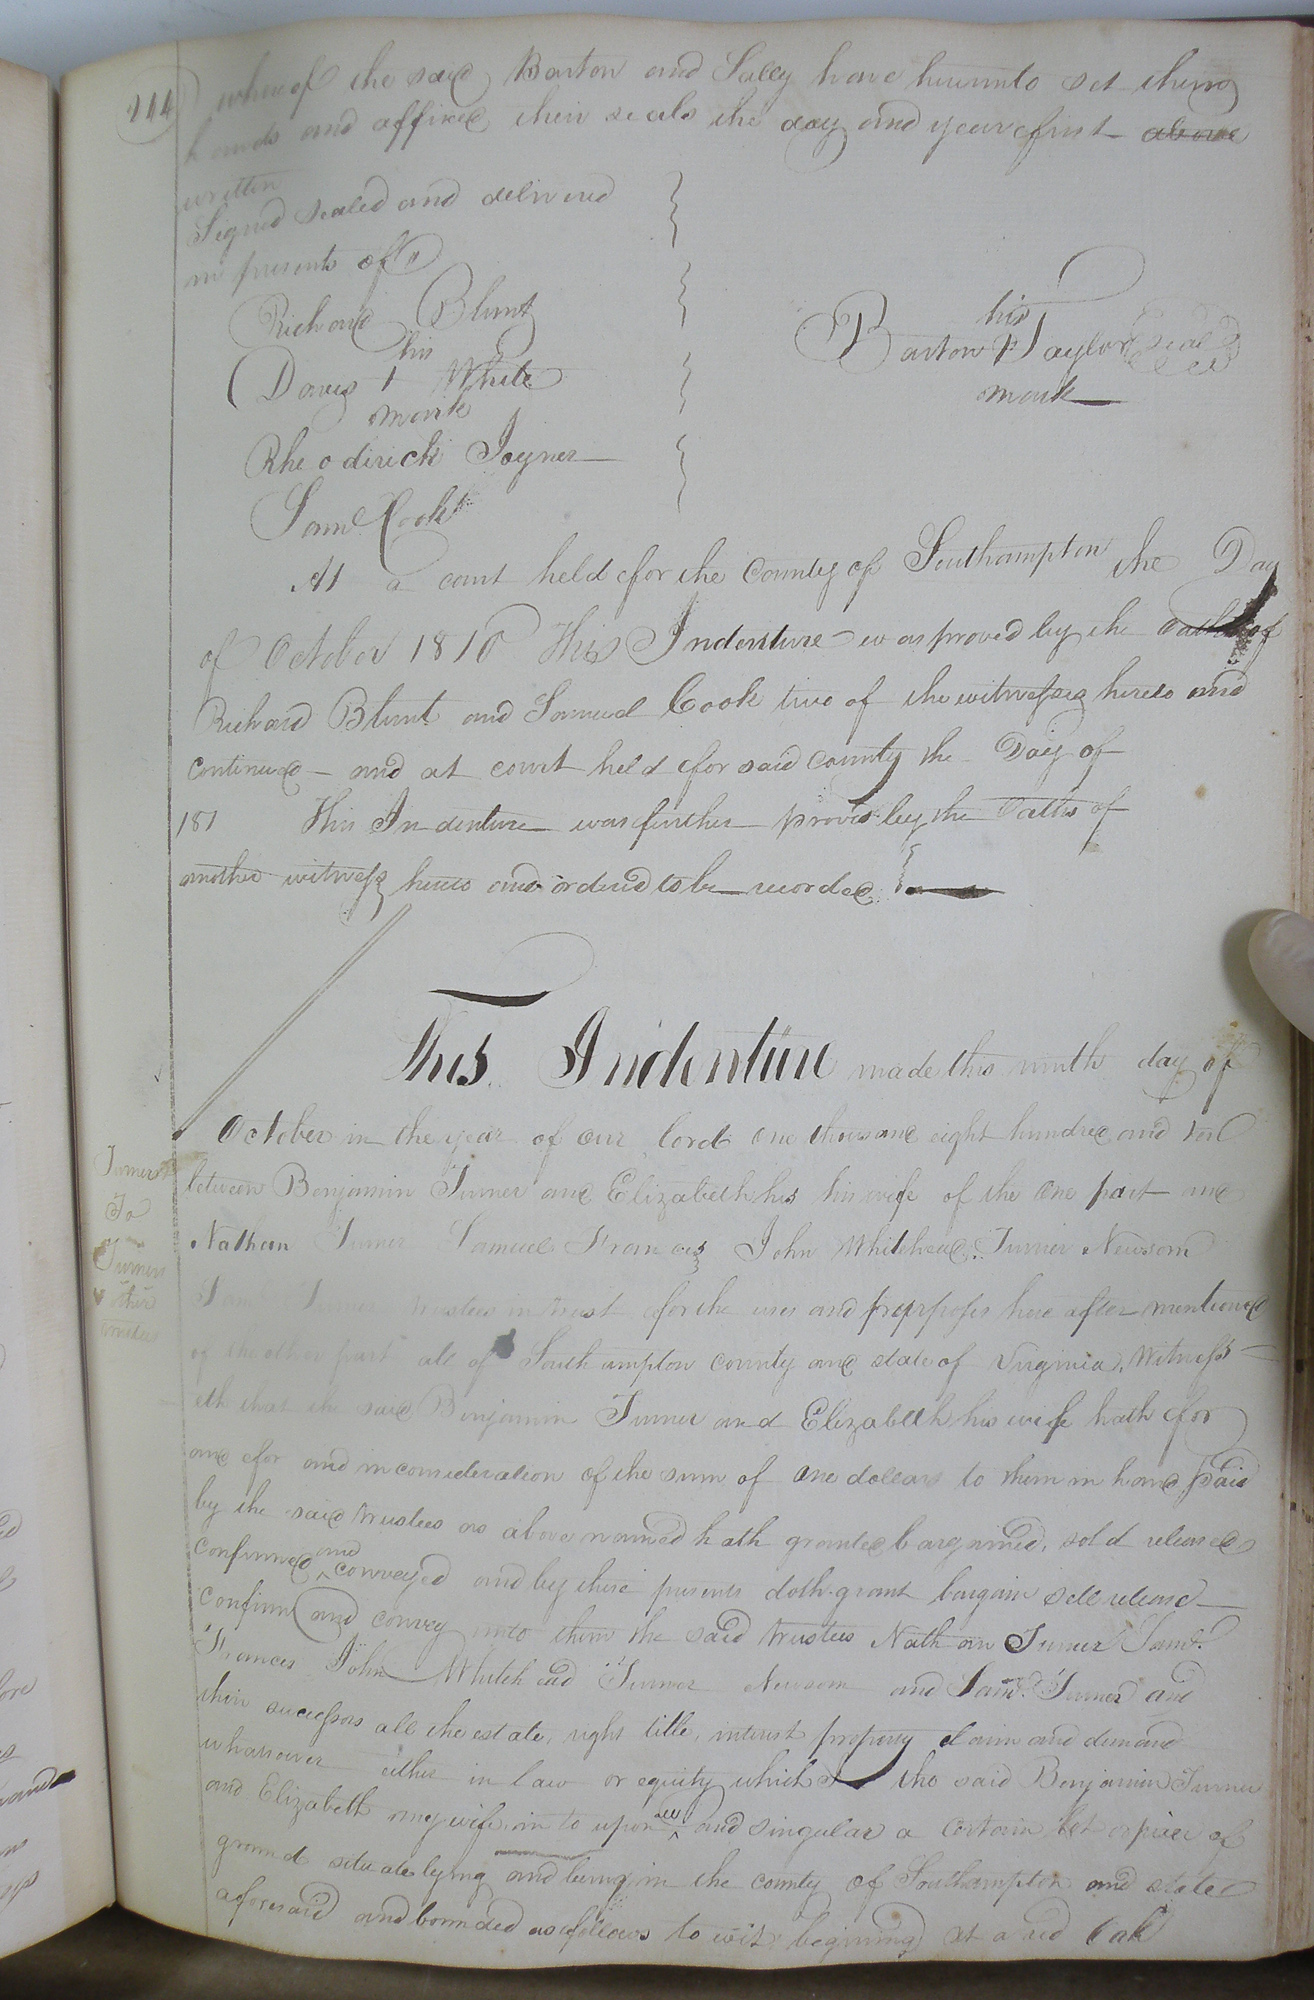 144
whereof the said Barton and Sally have hereunto set there
hands and affixed their seals the day and year first above
written
Signed sealed and delivered
in presents of
Richard Blunt
his
Davis + White
mark
Rhodirick Joyner
Saml Cook
his
Barton P Taylor Seal
mark
At a court held for the County of Southampton the Day
of October 1810 This Indenture was proved by the oaths of
Richard Blunt and Samuel Cook two of the witnesses hereto and
continued - and at court held for said county the Day of
181 This Indenture was further proved by the Oaths of
another witness hereto and ordered to be recorded
This Indenture made this ninth day of
October in the year of our lord one thousand eight hundred and ten
Turner
To
Turner
& other
trustees
between Benjamin Turner and Elizabeth his his wife of the one part and
Nathan Turner Samuel Francis John Whitehead Turner Newsom
Saml Turner trustees in trust for the uses and purposes here after mentioned
of the other part all of Southampton county and state of Virginia, Witness
eth that the said Benjamin Turner and Elizabeth his wife hath for
and for and in consideration of the sum of one dollars to them in hand paid
by the said trustees as above named hath granted bargained, sold released
confirmed and conveyed and by these presents doth grant bargain sell release
confirm and convey unto them the said trustees Nathan Turner Saml.
Frances John Whitehead Turner Newsom and Saml. Turner and
their successors all the estate, right title, interest property claim and demand
whatsoever either in law or equity which I the said Benjamin Turner
and Elizabeth my wife, in to upon all and singular a certain lot or piece of
ground situate lying and being in the county of Southampton and state
aforesaid and bounded as follows to wit, begining at a red Oak